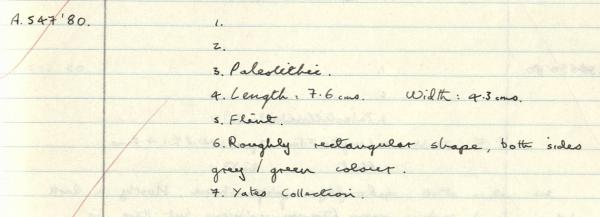 A.547'80. 1.
2.
3. Paleolithic.
4. Length: 7.6 cms. Width: 4.3 cms.
5. Flint.
6. Roughly rectangular shape, both sides
grey/green colour.
7. Yates Collection.